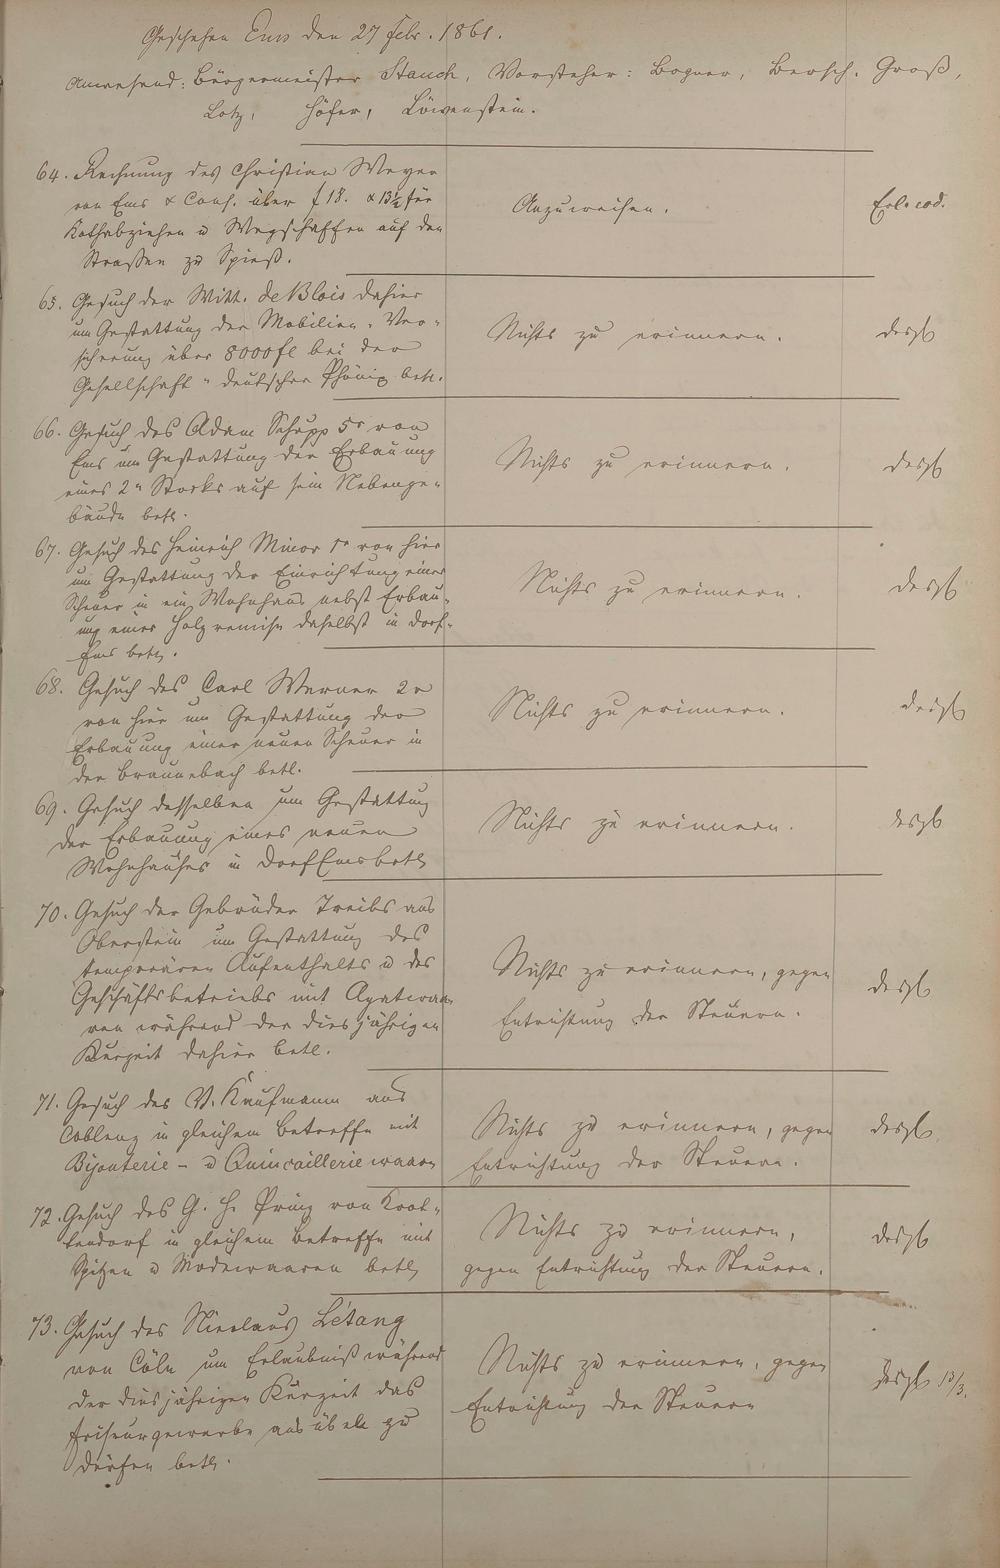 Geschehen Ems den 27 Febr. 1861.
Anwesend: Bürgermeister Stauch, Vorsteher: Bogner, Bersch, Groß,
Lotz, Höfer, Löwenstein.
64. Rechnung des Christian Meyer
von Ems & Cons. über f 18. x 13½ für
Kothabziehen u Wegschaffen auf den
Straßen zu Spieß.
Anzuweisen.
Erl. eod.
65. Gesuch der Witt. de Blois dahier
um Gestattung der Mobilien-Ver-
sicherung über 8000 fl bei der
Gesellschaft "deutscher Phönix betr.
Nichts zu erinnern.
desgl
66. Gesuch des Adam Schupp 5r von
Ems um Gestattung der Erbauung
eines 2n Stocks auf sein Nebenge-
bäude betr.
Nichts zu erinnern.
desgl
67. Gesuch des Heinrich Minor 5r von hier
um Gestattung der Einrichtung einer
Scheuer in ein Wohnhaus nebst Erbau-
ung einer Holzremise daselbst in Dorf-
Ems betr.
Nichts zu erinnern.
desgl
68. Gesuch des Carl Werner 2r
von hier um Gestattung der
Erbauung einer neuen Scheuer in
der Braunebach betr.
Nichts zu erinnern.
desgl
69. Gesuch desselben um Gestattung
der Erbauung eines neuen
Wohnhauses in Dorf Ems betr
Nichts zu erinnern.
desgl
70. Gesuch der Gebrüder Treibs aus
Oberstein um Gestattung des
temporären Aufenthalts u des
Geschäftsbetriebs mit Agatwaa-
ren während der diesjährigen
Kurzeit dahier betr.
Nichts zu erinnern, gegen
Entrichtung der Steuern.
desgl
71. Gesuch des V. Kaufmann aus
Coblenz in gleichem Betreffe mit
Bijouterie- u Quincailleriewaaren
Nichts zu erinnern, gegen
Entrichtung der Steuern.
desgl
72. Gesuch des G. H. Prinz von
in gleichem Betreffe mit
Spitzen u Modewaaren betr
Nichts zu erinnern,
gegen Entrichtung der Steuern.
desgl
73. Gesuch des Nicolaus Létang
von Cöln um Erlaubniß während
der diesjährigen Kurzeit das
Friseurgewerbe ausüben zu
dürfen betr.
Nichts zu erinnern, gegen
Entrichtung der Steuern
desgl 13/3.